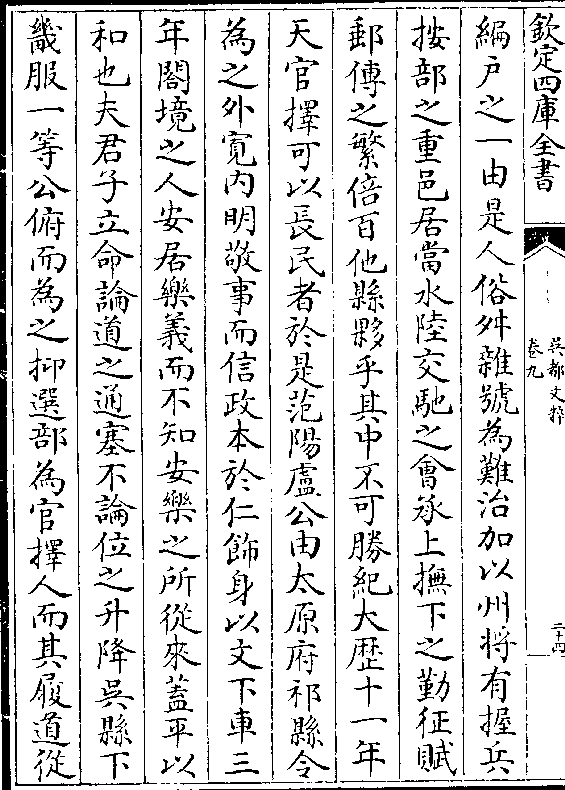 欽定四庫全書
吳都文粹
卷九
二十四
編戸之一由是人俗舛雜號為難治加以州将有握兵
按部之重邑居當水陸交馳之會承上撫下之勤征賦
郵傳之繁倍百他縣夥乎其中不可勝紀大歴十一年
天官擇可以長民者於是范陽盧公由太原府祁縣令
為之外寛内明敬事而信政本於仁飾身以文下車三
年闔境之人安居樂義而不知安樂之所從來蓋平以
和也夫君子立命論道之通塞不論位之升降吳縣下
畿服一等公俯而為之抑選部為官擇人而其履道從